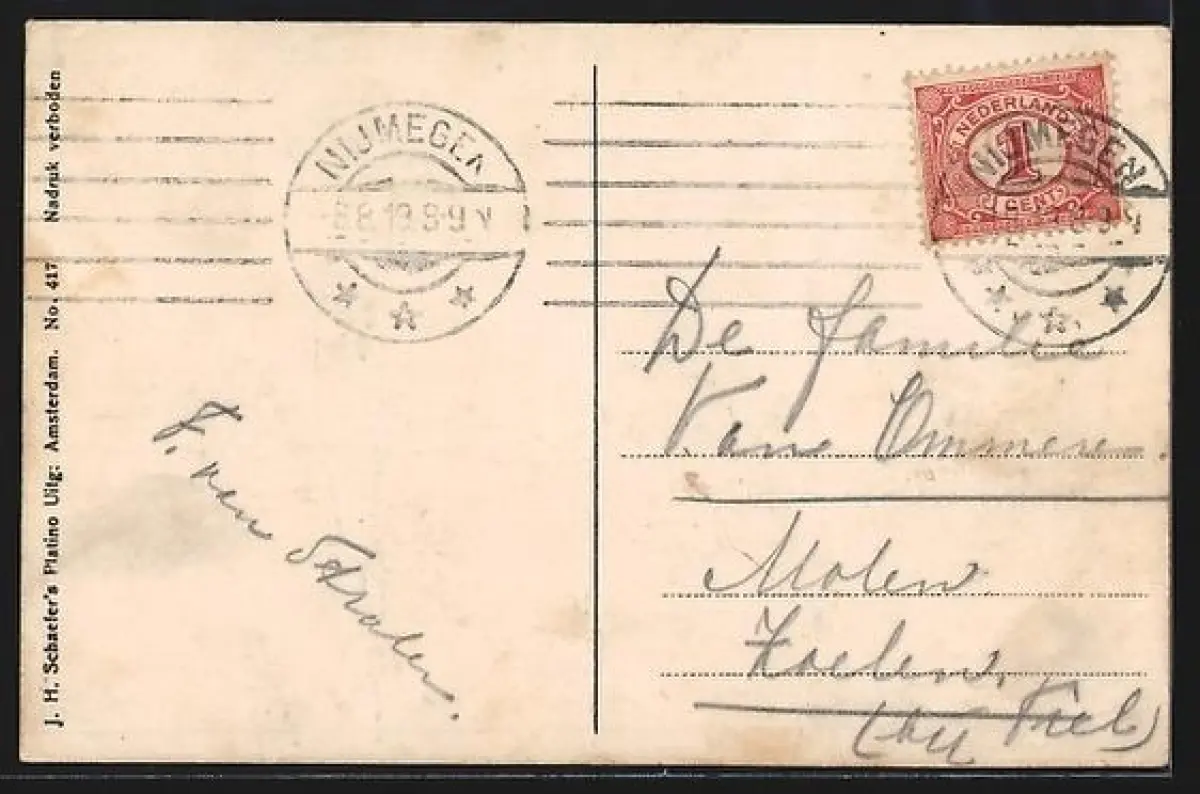 J. H. Schaefer's Platino Uitg: Amsterdam. No. 417 Nadruk verboden
NIJMEGEN
8.8.19.8-9 N
NEDERLAND
1
CENT
NIJMEGEN
De familie
van Ommeren
Molen
Zoelen.
(bij Tiel)
F. van